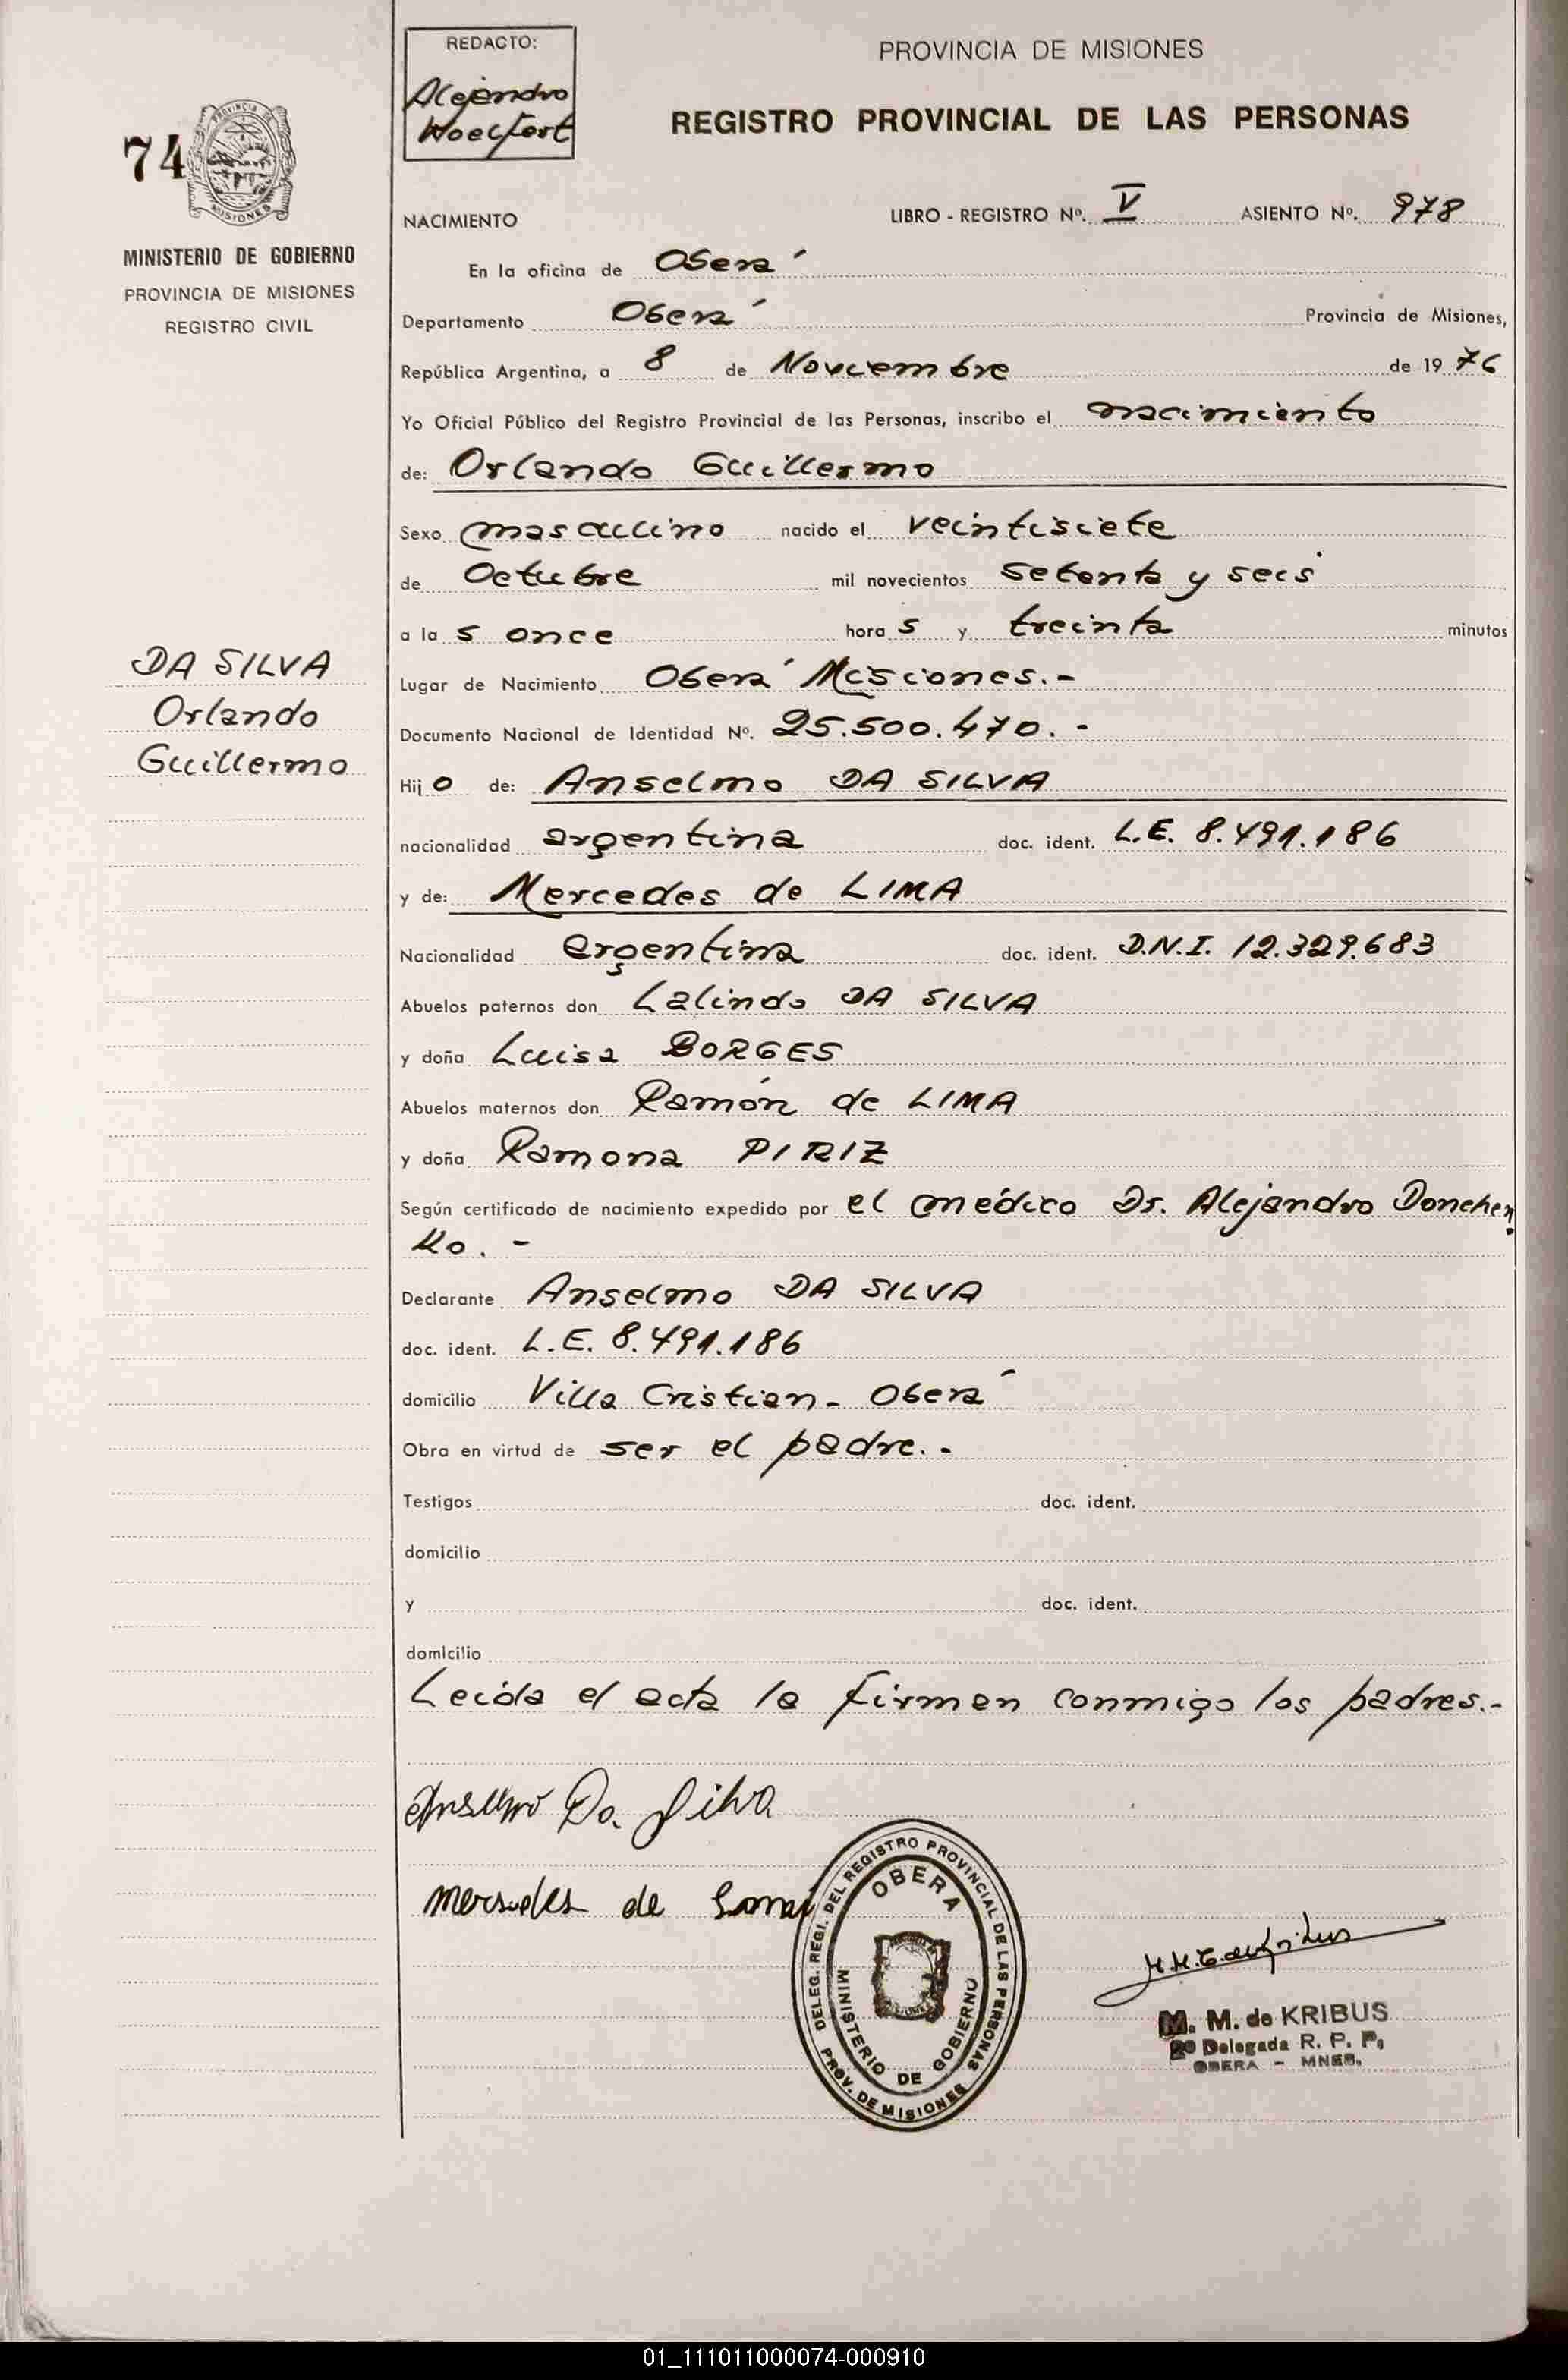 REDACTO:
Alejandro
Woelfert
PROVINCIA DE MISIONES
REGISTRO PROVINCIAL DE LAS PERSONAS
74
PROVINCIA
MISIONES
MINISTERIO DE GOBIERNO
PROVINCIA DE MISIONES
REGISTRO CIVIL
NACIMIENTO LIBRO - REGISTRO Nº. V ASIENTO Nº. 978
En la oficina de Oberá
Departamento Oberá Provincia de Misiones,
República Argentina, a 8 de Noviembre de 1976
Yo Oficial Público del Registro Provincial de las Personas, inscribo el nacimiento
de: Orlando Guillermo
Sexo masculino nacido el veintisiete
de Octubre mil novecientos setenta y seis
a las once horas y treinta minutos
DA SILVA
Orlando
Guillermo
Lugar de Nacimiento Oberá Misiones.-
Documento Nacional de Identidad Nº. 25.500.470.-
Hijo de: Anselmo DA SILVA
nacionalidad argentina doc. ident. L.E. 8.491.186
y de: Mercedes de LIMA
Nacionalidad argentina doc. ident. D.N.I. 12.329.683
Abuelos paternos don Lalindo DA SILVA
y doña Luisa BORGES
Abuelos maternos don Ramón de LIMA
y doña Ramona PIRIZ
Según certificado de nacimiento expedido por el médico Dr. Alejandro Donchen
ko.-
Declarante Anselmo DA SILVA
doc. ident. L.E. 8.491.186
domicilio Villa Cristian - Oberá
Obra en virtud de ser el padre.-
Testigos doc. ident.
domicilio
y doc. ident.
domicilio
Leída el acta la firman conmigo los padres.-
Anselmo Da Silva
mersedes de
DELEG. REGI. DEL REGISTRO PROVINCIAL DE LAS PERSONAS
PROV. DE MISIONES
OBERA
MINISTERIO DE GOBIERNO
M. M. de KRIBUS
2º Delegada R. P. P.
OBERA - MNES.
01_111011000074-000910